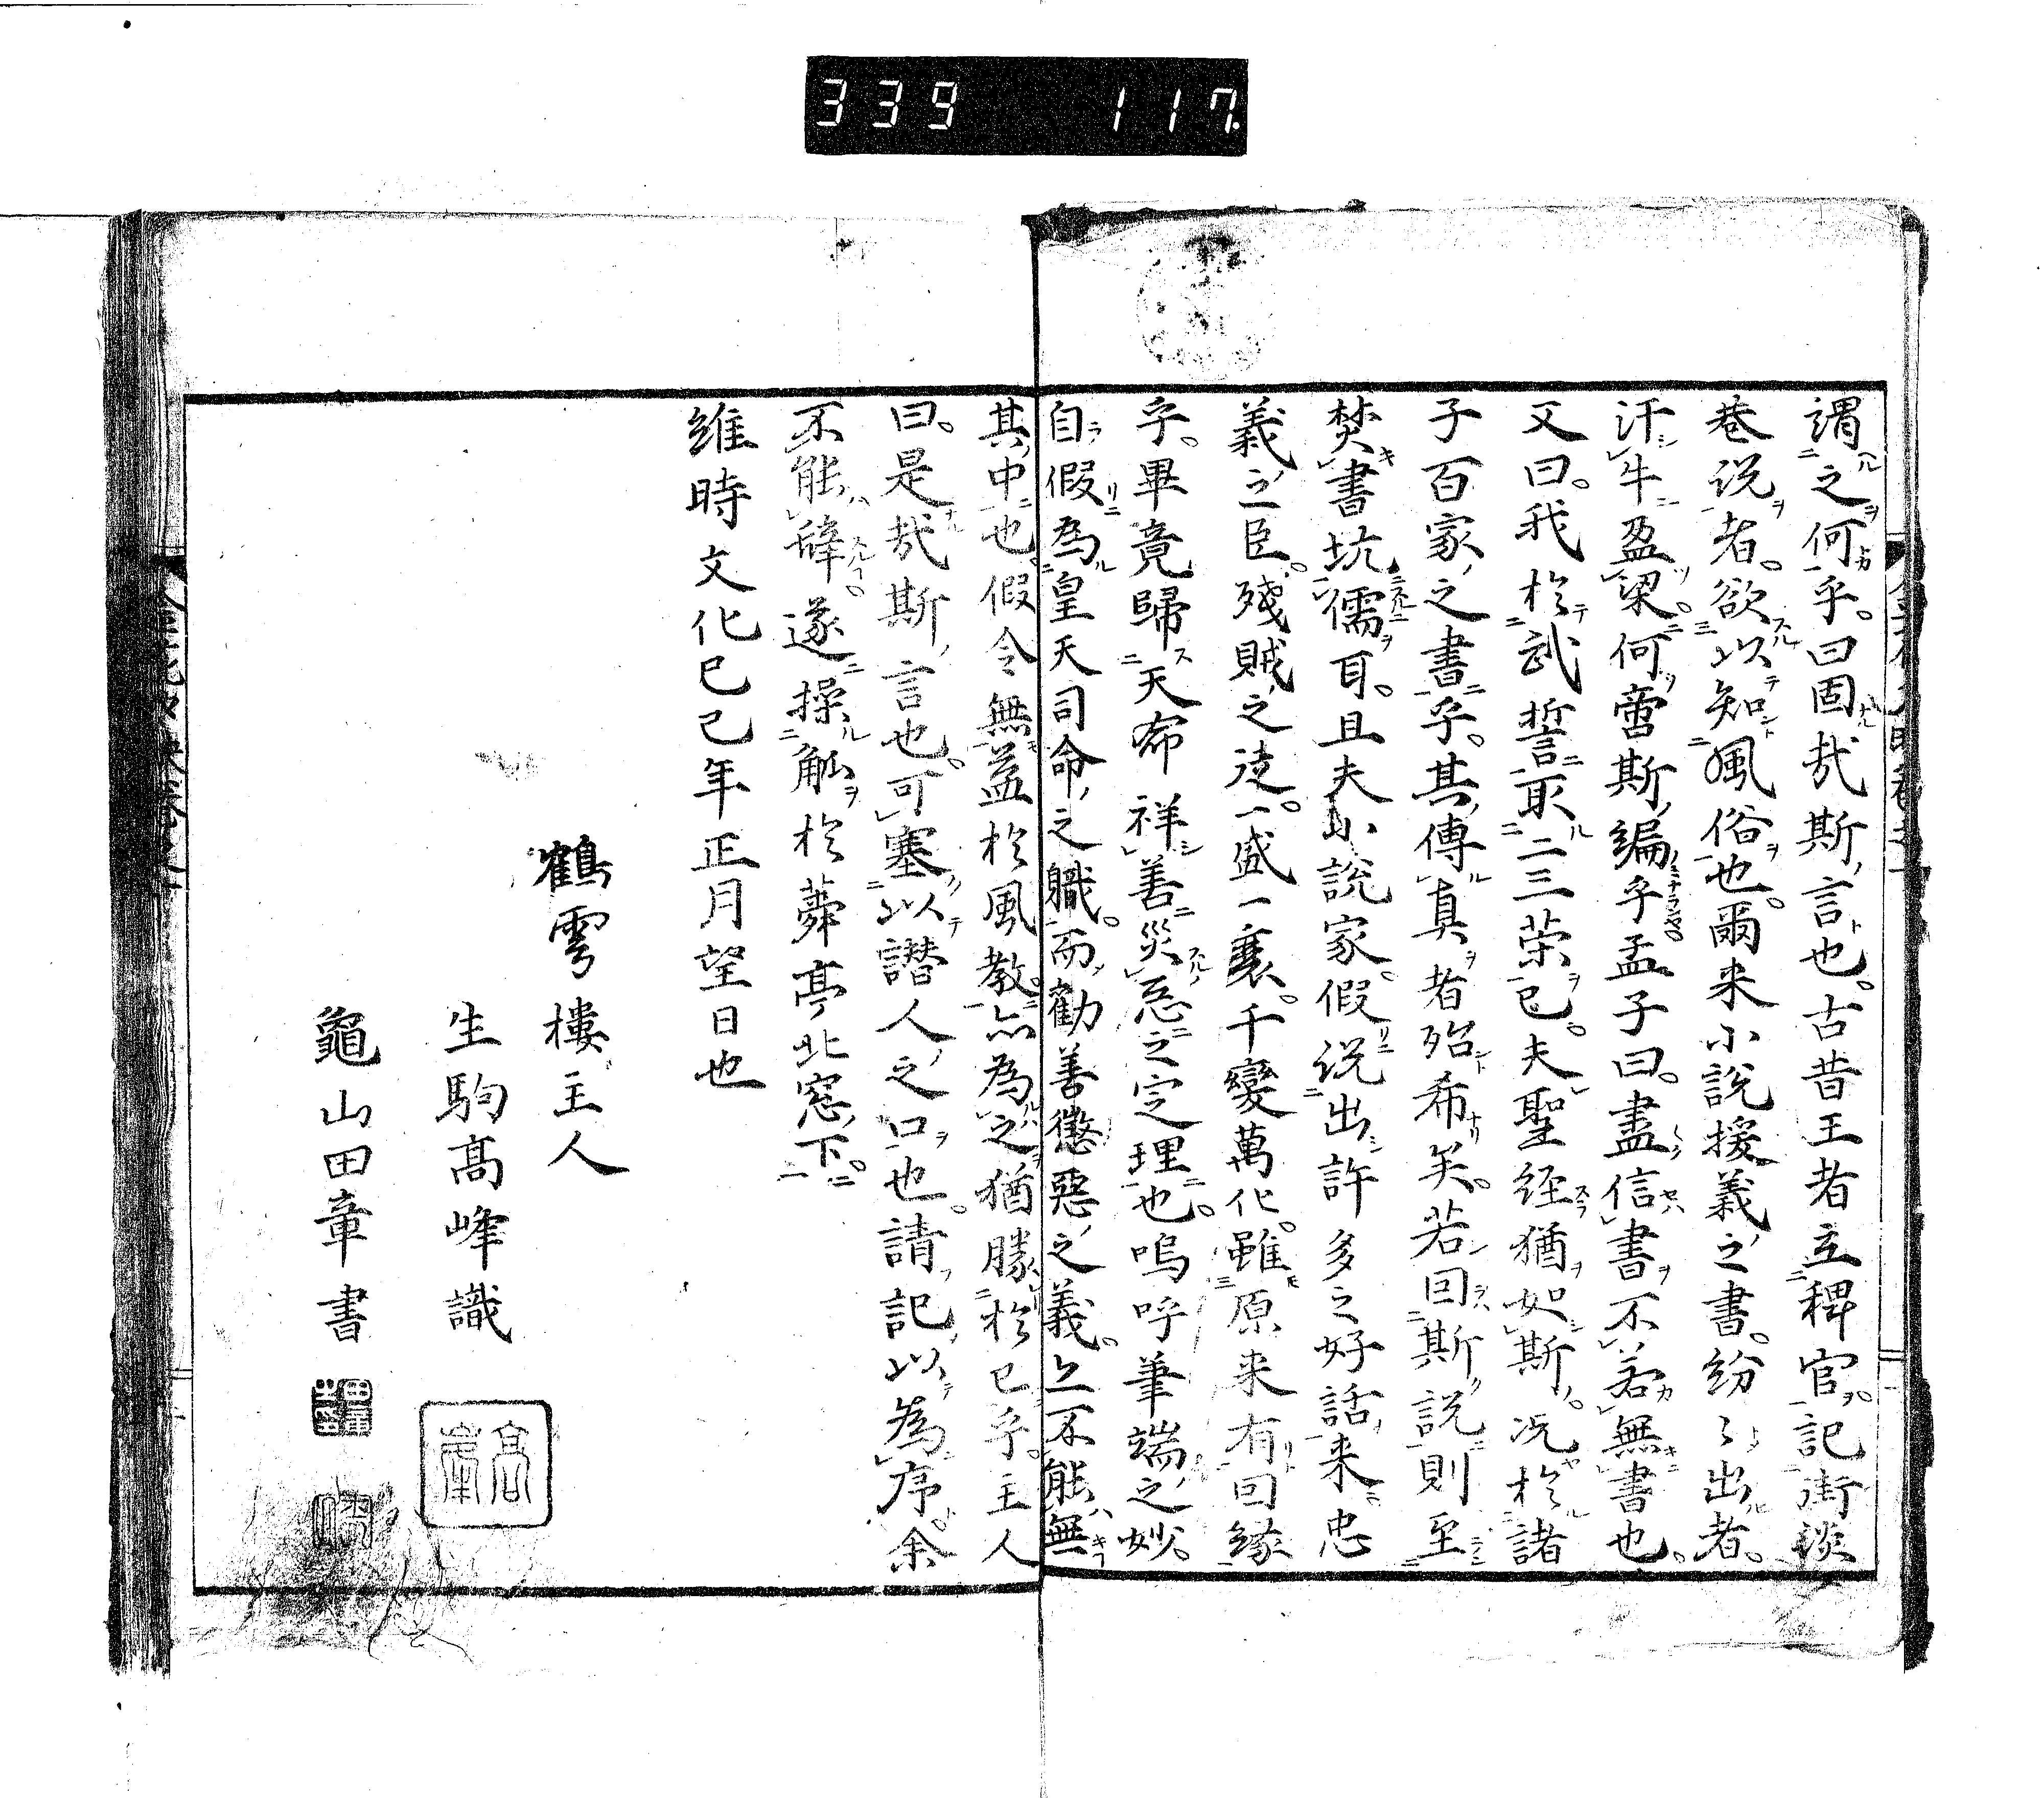 339 117
謂之何乎。曰固哉斯言也。古昔王者立稗官。記街談
巷説者。欲以知風俗也。爾来小説援義之書。紛〻出者。
汗牛盈梁。何啻斯編乎孟子曰。盡信書不若無書也。
又曰。我於武誓取二三策已。夫聖經猶如斯。况於諸
子百家之書乎。其傳真者殆希矣。若回斯説則至
焚書坑儒耳。且夫小説家。假説出許多之好話来忠
義之臣。殘賊之徒。一盛一衰。千變萬化。雖原来有回緣
乎。畢竟歸天命祥善災惡之定理也。嗚呼筆端之妙。
自假為皇天司命之職。而勸善懲惡之義。亦不能無
其中也。假令無益於風教。亦為之猶勝於已乎。主人
曰。是哉斯言也。可塞以譖人之口也。請記以為序。余
不能辭。遂操觚於蕣亭北窓下。
維時文化己巳年正月望日也
鶴雩樓主人
生駒高峰識
高峯
龜山田章書